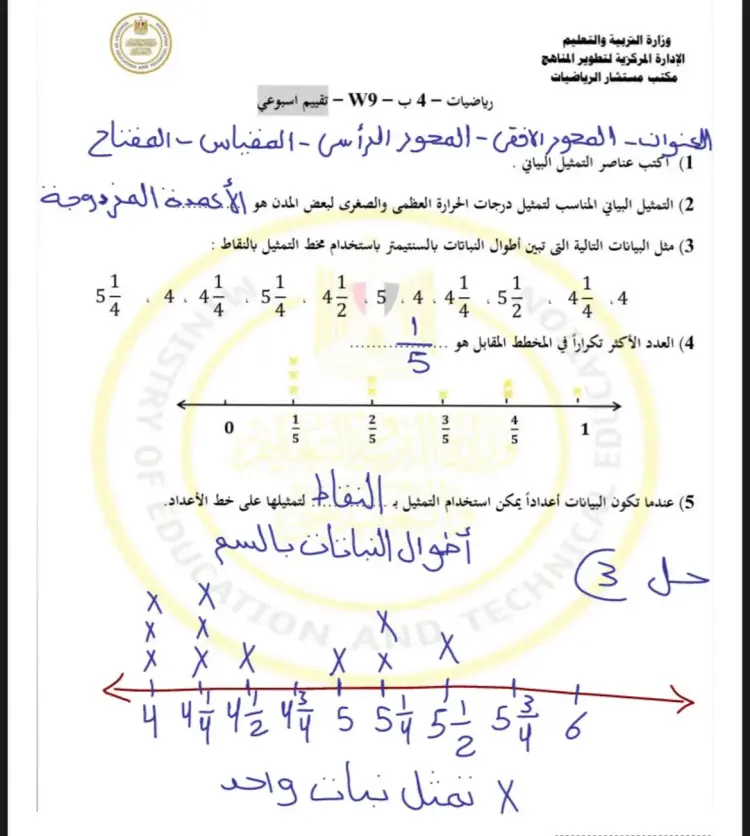 وزارة التربية والتعليم
الإدارة المركزية لتطوير المناهج
مكتب مستشار الرياضيات
رياضيات – 4 ب – W9 – تقييم اسبوعي
العنوان - المحور الافقى - المحور الرأسى - المقياس - المفتاح
1) اكتب عناصر التمثيل البياني .
2) التمثيل البياني المناسب لتمثيل درجات الحرارة العظمى والصغرى لبعض المدن هو الأعمدة المزدوجة
3) مثل البيانات التالية التى تبين أطوال النباتات بالسنتيمتر باستخدام مخطط التمثيل بالنقاط :
5 1/4 ، 4 ، 4 1/4 ، 5 1/4 ، 4 1/2 ، 5 ، 4 ، 4 1/4 ، 5 1/2 ، 4 1/4 ، 4
4) العدد الأكثر تكراراً في المخطط المقابل هو 1/5
0 1/5 2/5 3/5 4/5 1
5) عندما تكون البيانات أعداداً يمكن استخدام التمثيل بـ النقاط لتمثيلها على خط الأعداد.
أطوال النباتات بالسم
حل 3
4 4 1/4 4 1/2 4 3/4 5 5 1/4 5 1/2 5 3/4 6
X تمثل نبات واحد
MINISTRY OF EDUCATION AND TECHNICAL EDUCATION